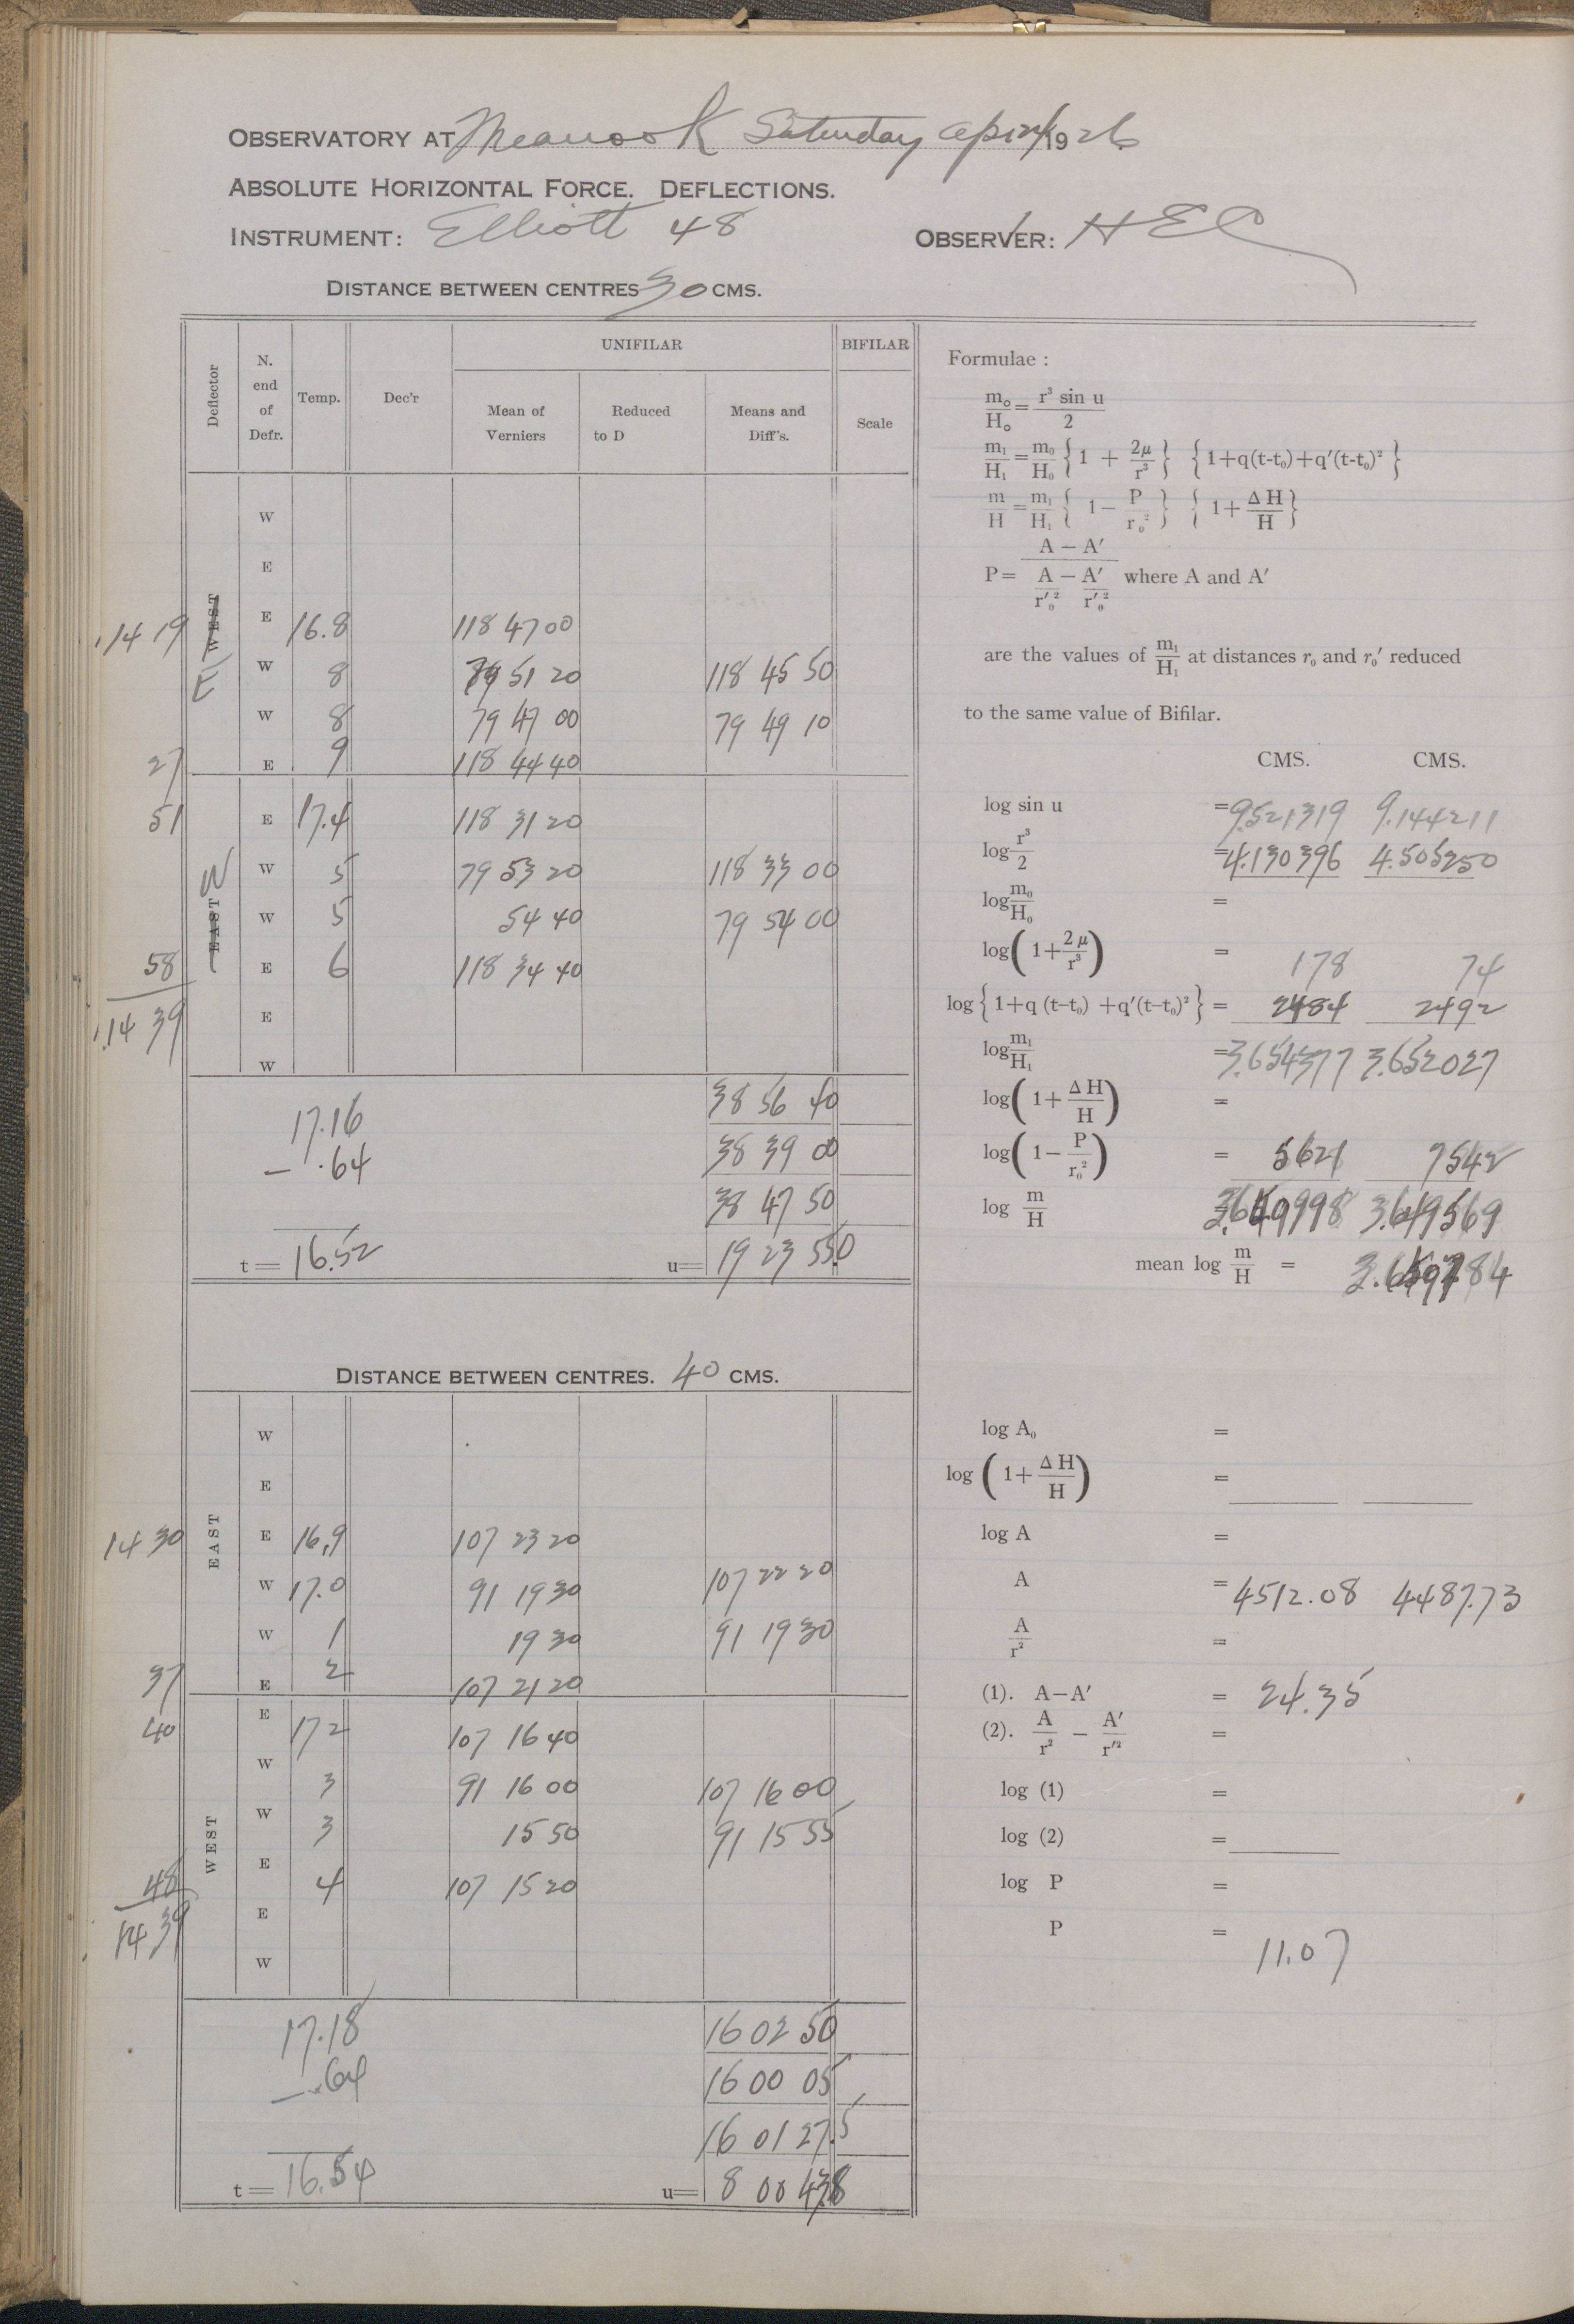 OBSERVATORY AT Meanook Saturday April 24 1926
ABSOLUTE HORIZONTAL FORCE. DEFLECTIONS.
INSTRUMENT: Elliott 48 OBSERVER: HEC
DISTANCE BETWEEN CENTRES 30 CMS.
Deflector N. end of Defr. Temp. Dec'r UNIFILAR BIFILAR
Mean of Verniers Reduced to D Means and Diff's. Scale
W
E
14 19 WEST E 16.8 118 47 00
E W 8 79 51 20 118 45 50
W 8 79 47 00 79 49 10
27 E 9 118 44 40
51 E 17.4 118 31 20
EAST W W 5 79 53 20 118 33 00
W 5 54 40 79 54 00
58 E 6 118 34 40
14 39 E
W
38 56 40
17.16 38 39 00
- .64 38 47 50
t = 16.52 u = 19 23 55.0
Formulae :
m₀/H₀ = r³ sin u/2
m₁/H₁ = m₀/H₀ {1 + 2μ/r³} {1+q(t-t₀)+q′(t-t₀)²}
m/H = m₁/H₁ {1 − P/r₀²} {1+ΔH/H}
P = A − A′ / A/r′₀² − A′/r′₀² where A and A′
are the values of m₁/H₁ at distances r₀ and r₀′ reduced
to the same value of Bifilar.
CMS. CMS.
log sin u = 9.521319 9.144211
log r³/2 = 4.130396 4.505250
log m₀/H₀ =
log (1+2μ/r³) = 178 74
log {1+q (t-t₀) +q′(t-t₀)²} = 2484 2492
log m₁/H₁ = 3.654377 3.652027
log (1+ΔH/H) =
log (1−P/r₀²) = 5621 2542
log m/H 3.649998 3.649569
mean log m/H = 3.649784
DISTANCE BETWEEN CENTRES. 40 CMS.
W
E
14 30 EAST E 16.9 107 23 20
W 17.0 91 19 30 107 22 20
W 1 19 30 91 19 30
37 E 2 107 21 20
40 E 17 2 107 16 40
W 3 91 16 00 107 16 00
WEST W 3 15 50 91 15 55
48 E 4 107 15 20
14 39 E
W
17.18 16 02 50
- .64 16 00 05
16 01 27.5
t = 16.54 u = 8 00 43.8
log A₀ =
log (1+ΔH/H) =
log A =
A = 4512.08 4487.73
A/r² =
(1). A−A′ = 24.35
(2). A/r² − A′/r′² =
log (1) =
log (2) =
log P =
P = 11.07